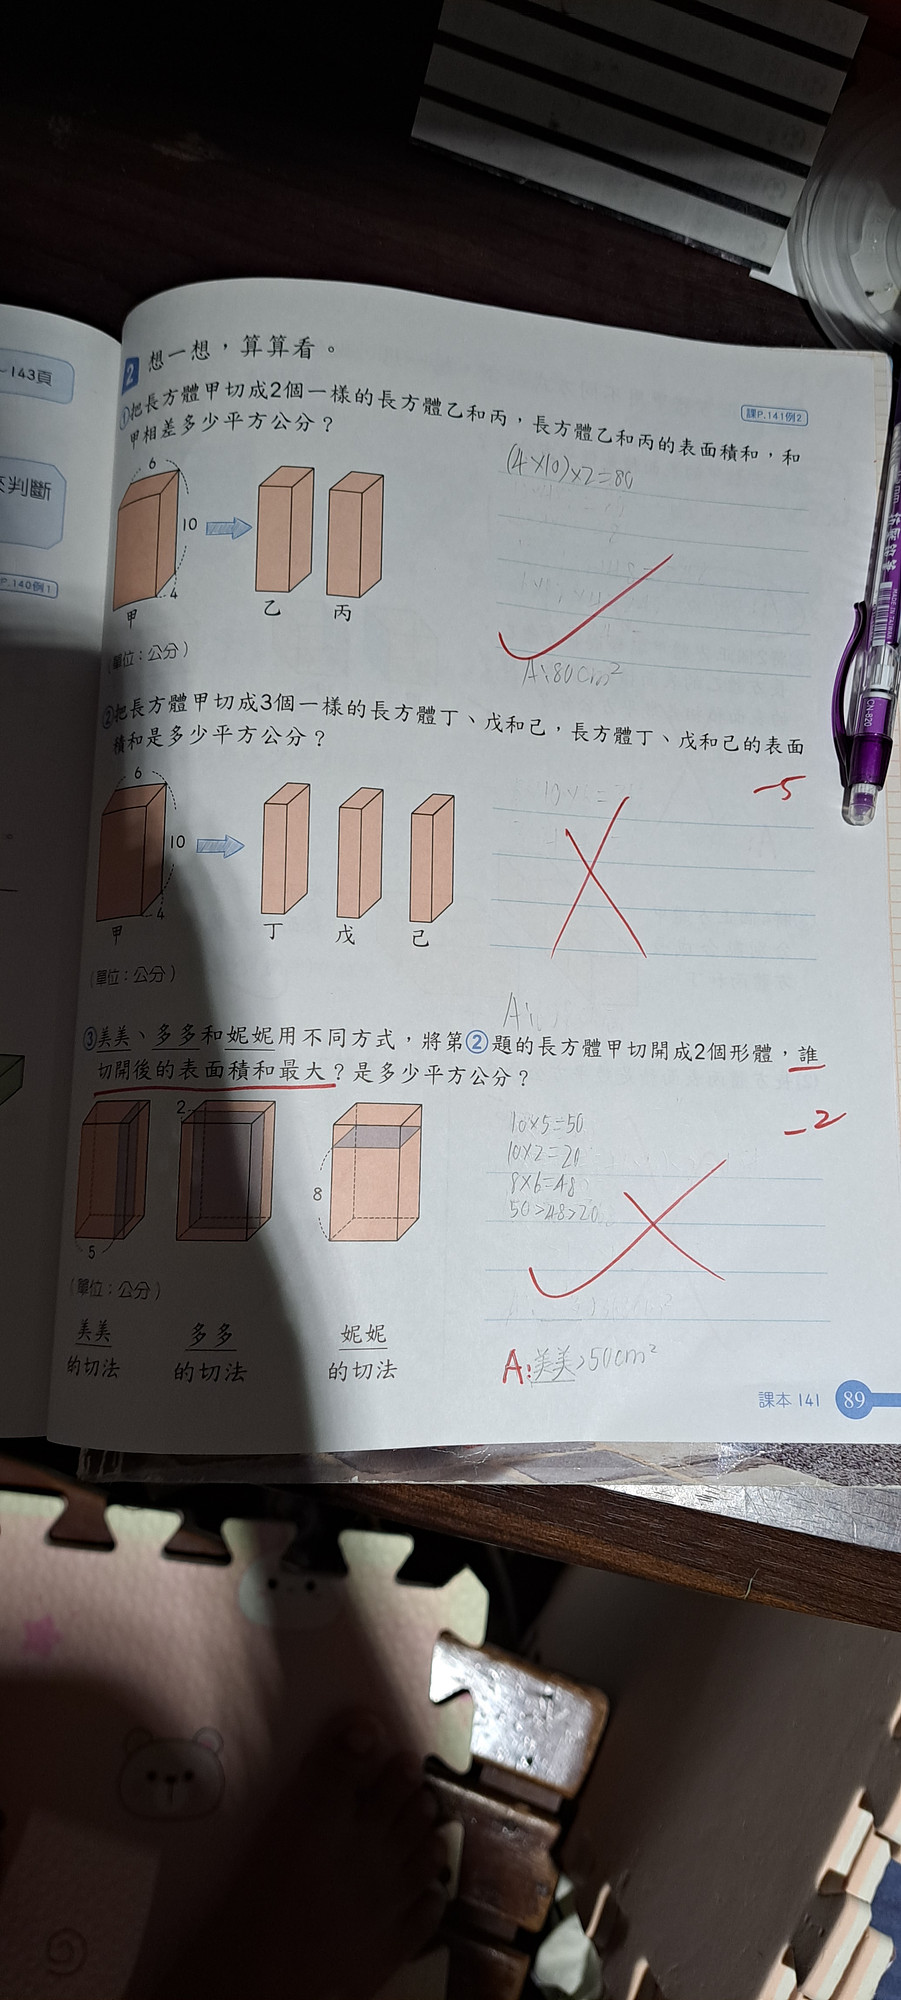 ~143頁
判斷
P.140例1
2 想一想，算算看。
課P.141例2
①把長方體甲切成2個一樣的長方體乙和丙，長方體乙和丙的表面積和，和
甲相差多少平方公分？
(4×10)×2=80
6
10
4
甲
乙
丙
(單位：公分)
A:80cm²
②把長方體甲切成3個一樣的長方體丁、戊和己，長方體丁、戊和己的表面
積和是多少平方公分？
-5
6
10
4
甲
丁
戊
己
(單位：公分)
A:
③美美、多多和妮妮用不同方式，將第②題的長方體甲切開成2個形體，誰
切開後的表面積和最大？是多少平方公分？
-2
2
8
5
10×5=50
10×2=20
8×6=48
50>48>20
(單位：公分)
美美
的切法
多多
的切法
妮妮
的切法
A:美美,50cm²
課本 141
89
CN-820
MADE IN TAIWAN